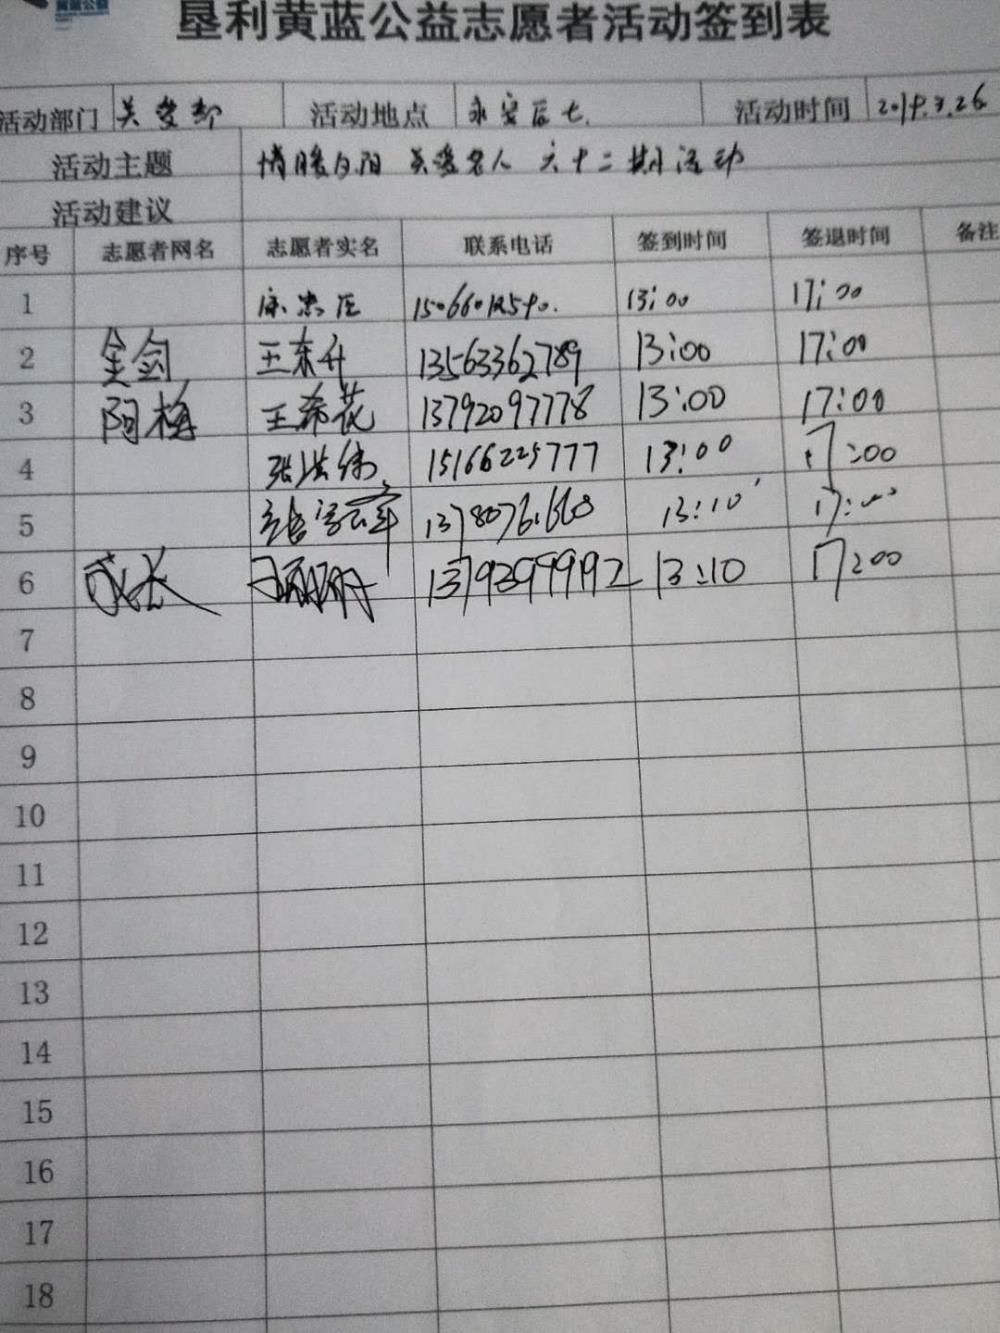 垦利黄蓝公益志愿者活动签到表
活动部门 关爱部 活动地点 永安辰七. 活动时间 2019.3.26
活动主题 情暖夕阳 关爱老人 六十二期活动
活动建议
序号 志愿者网名 志愿者实名 联系电话 签到时间 签退时间 备注
1 13:00 17:00
2 金剑 王东升 13563362789 13:00 17:00
3 阿梅 王希花 13792097778 13:00 17:00
4 张洪伟 15166225777 13:00 17:00
5 13:10 17:00
6 成长 13793999192 13:10 17:00
7
8
9
10
11
12
13
14
15
16
17
18